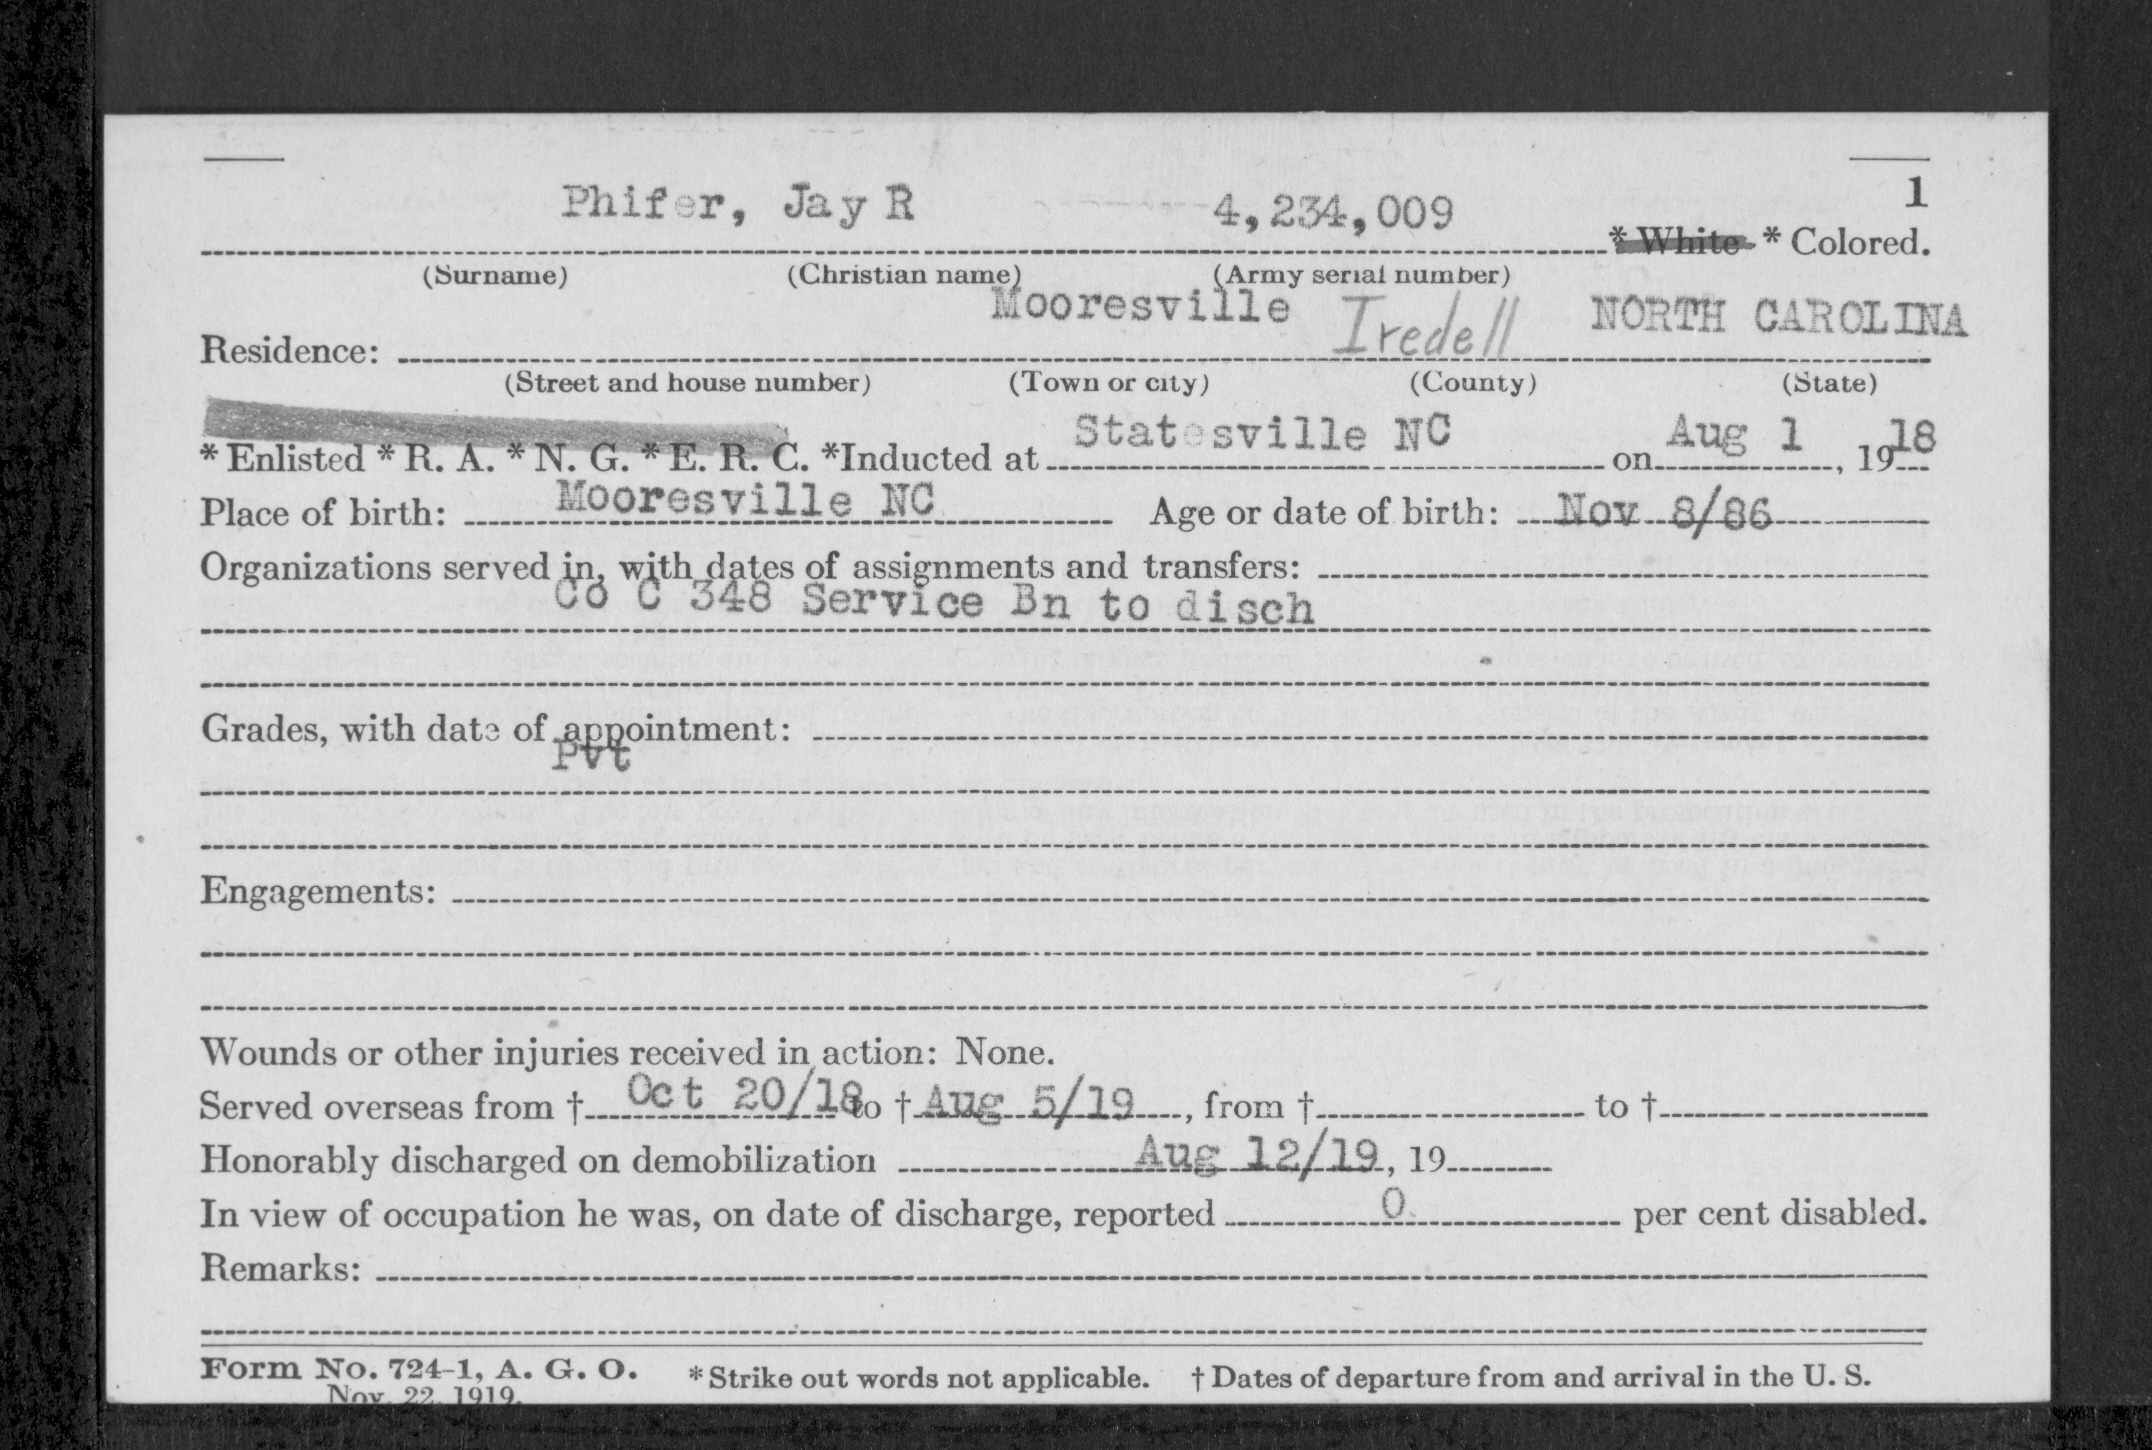 1
Phifer, Jay R 4,234,009 * White * Colored.
(Surname) (Christian name) (Army serial number)
Mooresville Iredell NORTH CAROLINA
Residence:
(Street and house number) (Town or city) (County) (State)
* Enlisted * R. A. * N. G. * E. R. C. *Inducted at Statesville NC on Aug 1, 1918
Place of birth: Mooresville NC Age or date of birth: Nov 8/86
Organizations served in, with dates of assignments and transfers:
Co C 348 Service Bn to disch
Grades, with date of appointment:
Pvt
Engagements:
Wounds or other injuries received in action: None.
Served overseas from † Oct 20/18 to † Aug 5/19, from † to †
Honorably discharged on demobilization Aug 12/19, 19
In view of occupation he was, on date of discharge, reported 0 per cent disabled.
Remarks:
Form No. 724-1, A. G. O. * Strike out words not applicable. † Dates of departure from and arrival in the U. S.
Nov. 22, 1919.